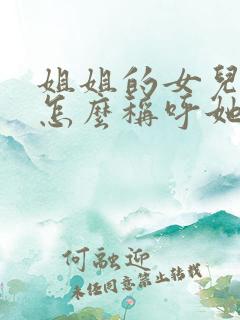 姐姐的女兒
怎麼稱呼她
何融迎
未经同意禁止转载